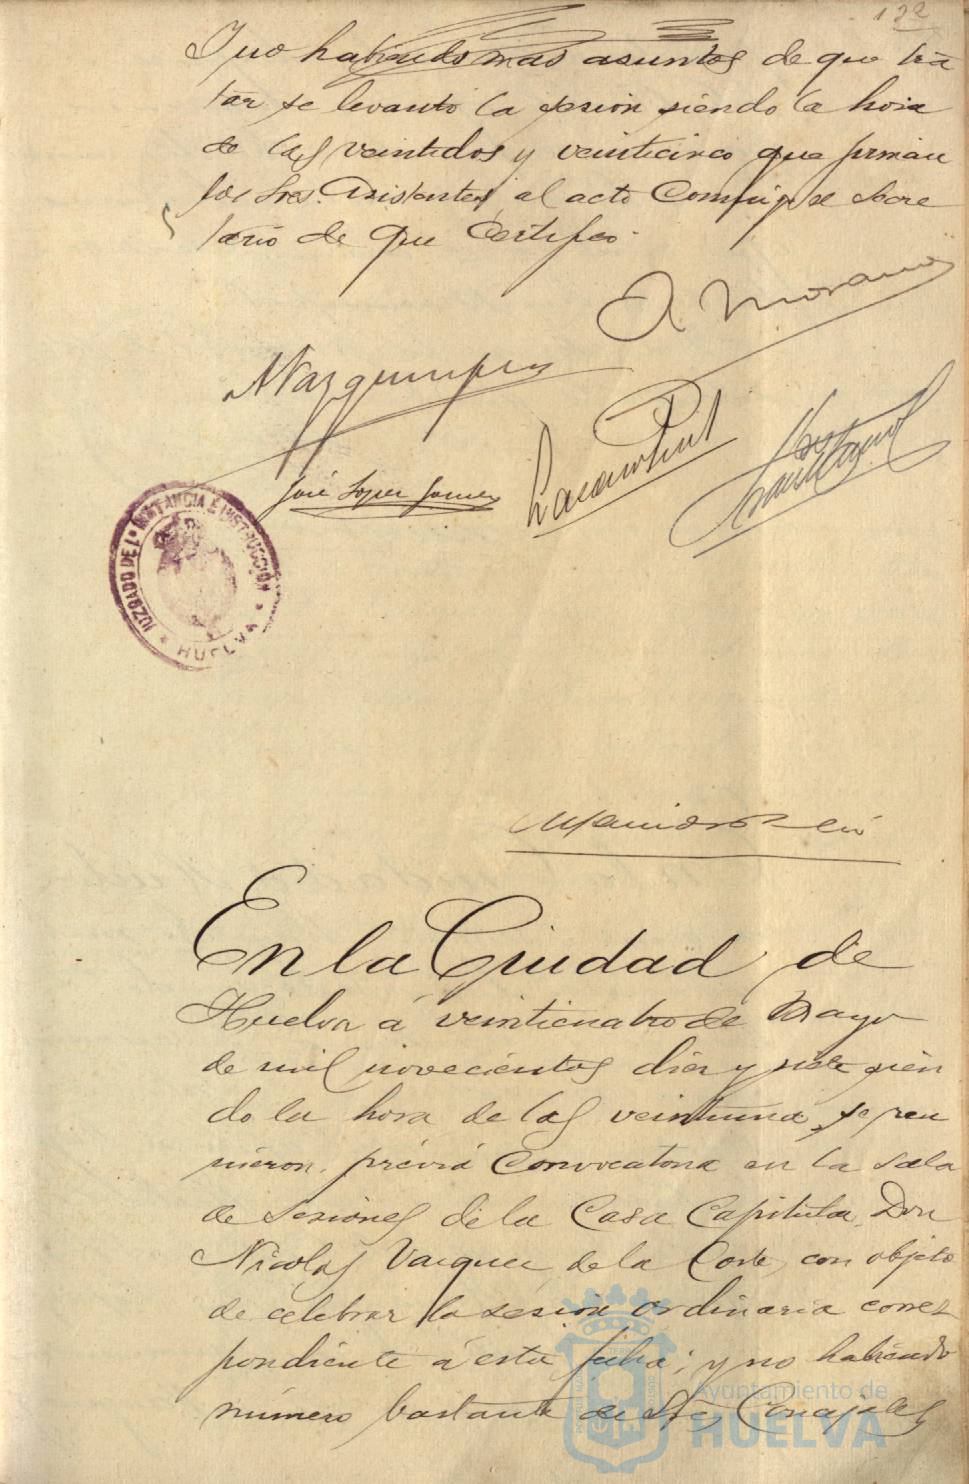 122
Y no habiendo mas asuntos de que tra
tar se levantó la sesion siendo la hora
de las veintidos y veinticinco que firman
los Sres. Asistentes al acto Conmigo el Secre
tario de que Certifico.
A Morano
José Lopez Gomez
JUZGADO DE 1ª INSTANCIA E INSTRUCCIÓN
* HUELVA *
En la Ciudad de
Huelva á veinticuatro de Mayo
de mil novecientos diez y siete sien
do la hora de las veintiuna, se reu
nieron, prévia Convocatoria en la Sala
de Sesiones de la Casa Capitular, Don
Nicolás Vazquez de la Corte, con objeto
de celebrar la sesion ordinaria corres
pondiente á esta fecha; y no habiendo
número bastante de Sres Concejales
Ayuntamiento de
HUELVA